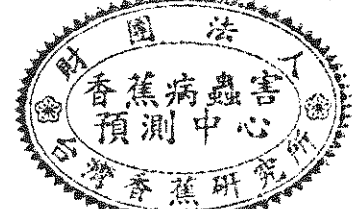 財團法人
香蕉病蟲害
預測中心
台灣香蕉研究所